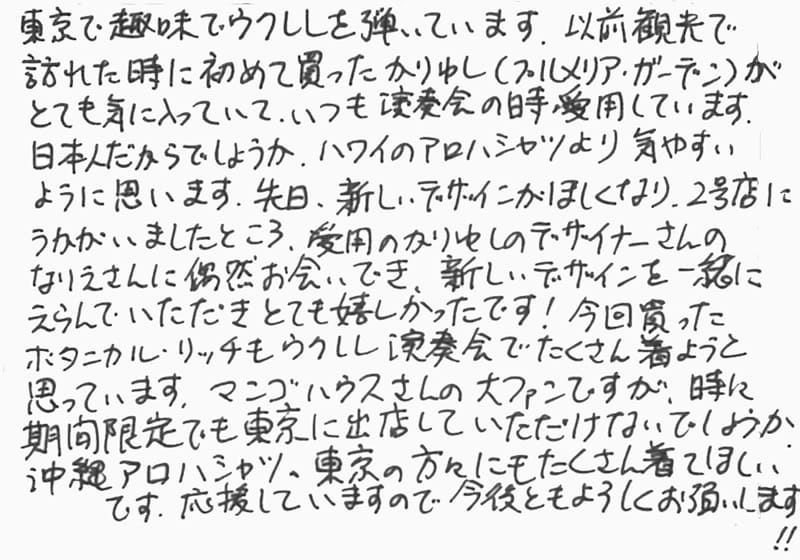 東京で趣味でウクレレを弾いています. 以前観光で
訪れた時に初めて買ったかりゆし(プルメリア・ガーデン)が
とても気に入っていて、いつも演奏会の時愛用しています.
日本人だからでしょうか. ハワイのアロハシャツより気やすい
ように思います. 先日、新しいデザインがほしくなり、2号店に
うかがいましたところ、愛用のかりゆしのデザイナーさんの
なりえさんに偶然お会いでき、新しいデザインを一緒に
えらんでいただきとても嬉しかったです! 今回買った
ボタニカル・リッチもウクレレ演奏会でたくさん着ようと
思っています. マンゴハウスさんの大ファンですが、時に
期間限定でも東京に出店していただけないでしょうか.
沖縄アロハシャツ、東京の方々にもたくさん着てほしい
です. 応援していますので今後ともよろしくお願いします
!!